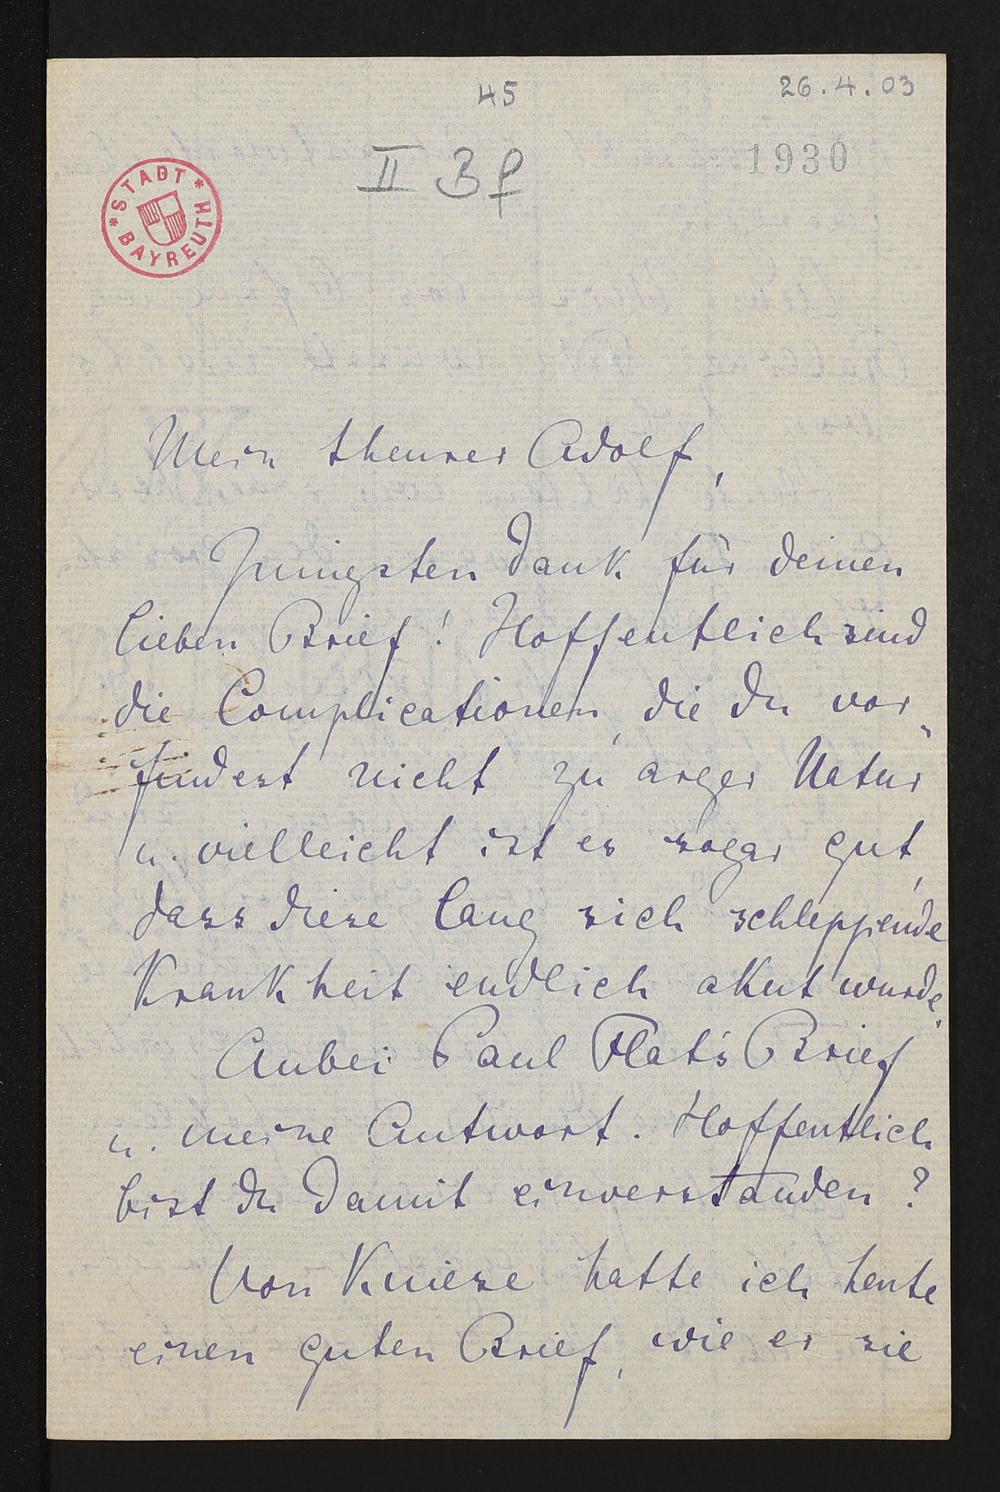 45
26.4.03
II Bf
1930
* STADT * BAYREUTH
Mein theurer Adolf,
Innigsten Dank für deinen
lieben Brief! Hoffentlich sind
die Complicationen, die du vor„
findest nicht zu arger Natur
u. vielleicht ist es sogar gut,
dass diese lang sich schleppende
Krankheit endlich akut wurde.
Anbei Paul Flat's Brief
u. meine Antwort. Hoffentlich
bist du damit einverstanden?
Von Kniese hatte ich heute
einen guten Brief, wie er sie